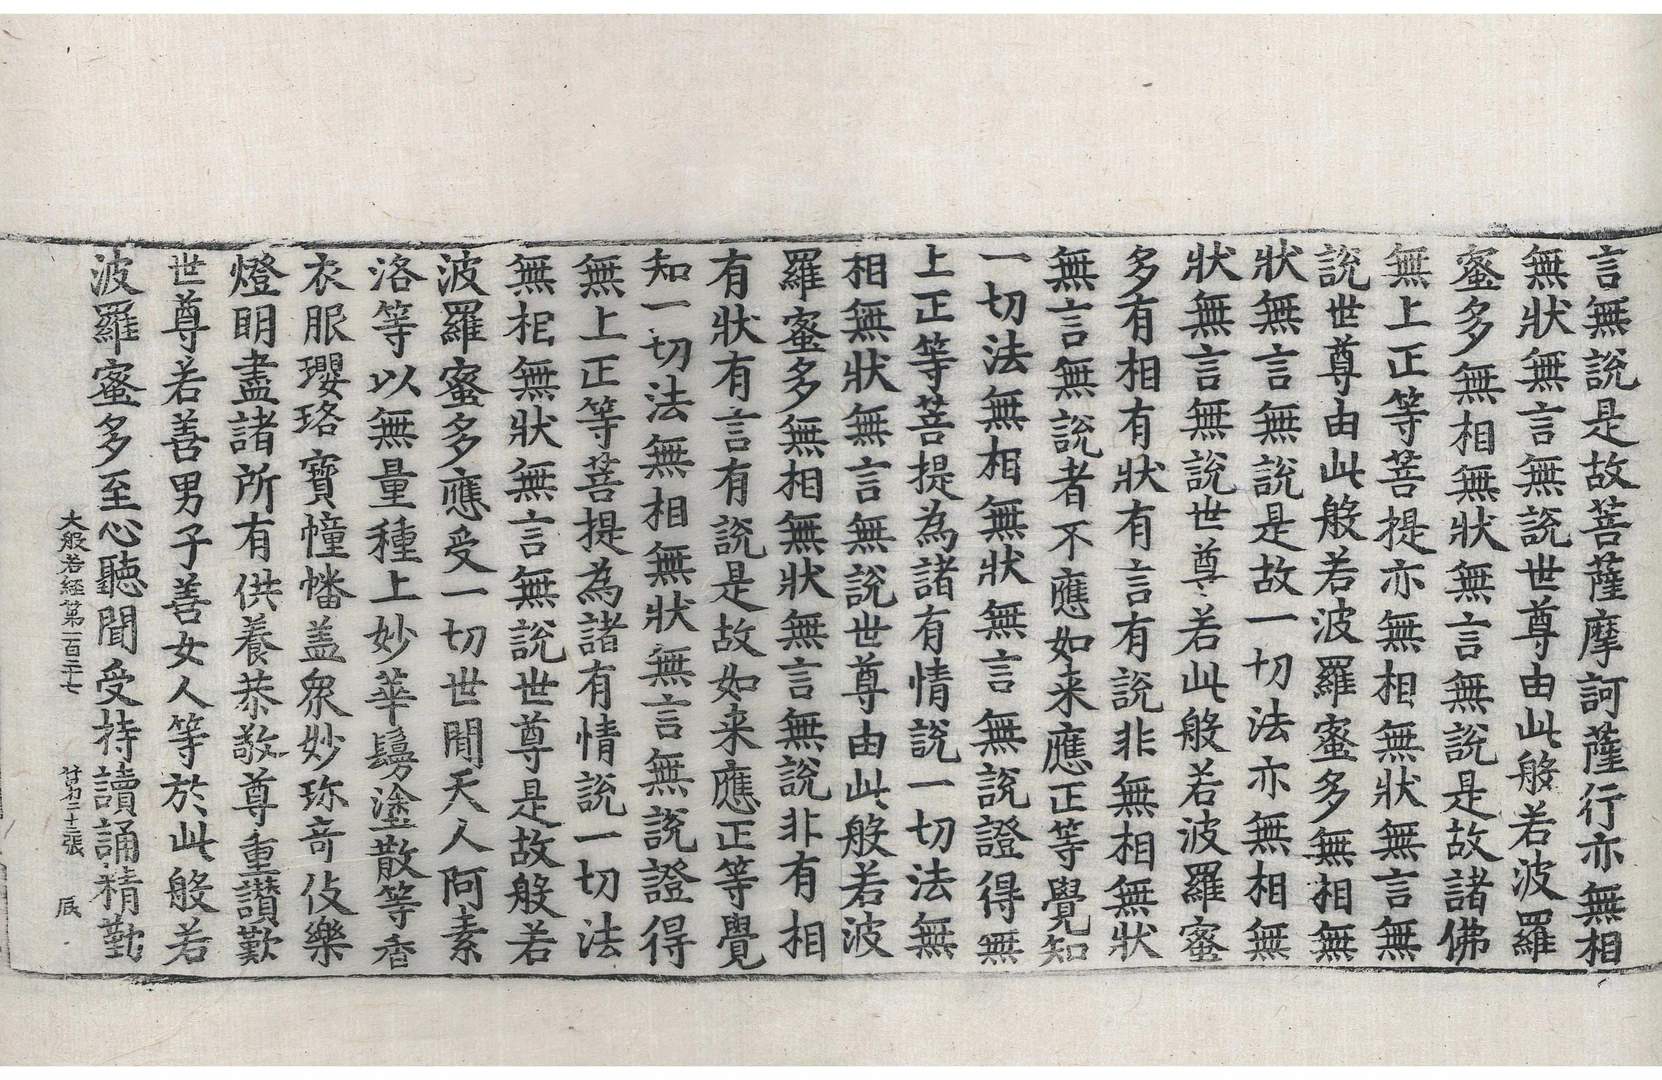 言無說是故菩薩摩訶薩行亦無相
無狀無言無說世尊由此般若波羅
蜜多無相無狀無言無說是故諸佛
無上正等菩提亦無相無狀無言無
說世尊由此般若波羅蜜多無相無
狀無言無說是故一切法亦無相無
狀無言無說世尊若此般若波羅蜜
多有相有狀有言有說非無相無狀
無言無說者不應如来應正等覺知
一切法無相無狀無言無說證得無
上正等菩提為諸有情說一切法無
相無狀無言無說世尊由此般若波
羅蜜多無相無狀無言無說非有相
有狀有言有說是故如来應正等覺
知一切法無相無狀無言無說證得
無上正等菩提為諸有情說一切法
無相無狀無言無說世尊是故般若
波羅蜜多應受一切世間天人阿素
洛等以無量種上妙華鬘塗散等香
衣服瓔珞寶幢幡盖衆妙珎竒伎樂
燈明盡諸所有供養恭敬尊重讃歎
世尊若善男子善女人等於此般若
波羅蜜多至心聽聞受持讀誦精勤
大般若經第一百二十七 張 辰